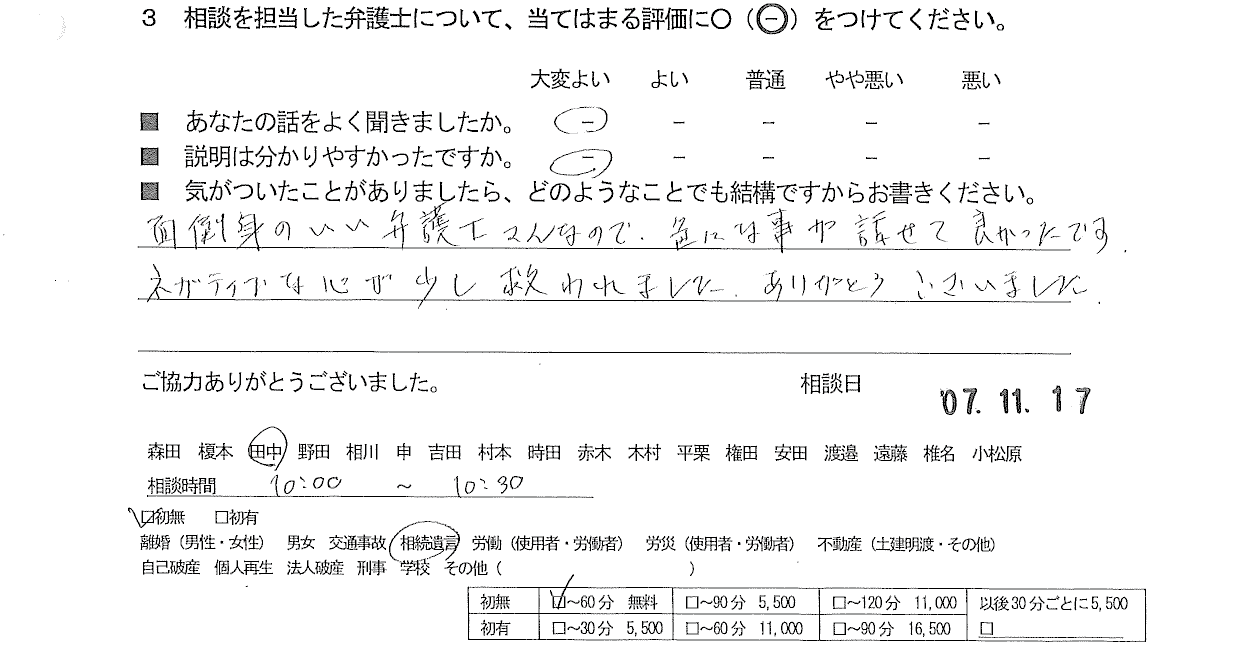 3 相談を担当した弁護士について、当てはまる評価に〇（㊀）をつけてください。
大変よい よい 普通 やや悪い 悪い
■ あなたの話をよく聞きましたか。 － － － － －
■ 説明は分かりやすかったですか。 － － － － －
■ 気がついたことがありましたら、どのようなことでも結構ですからお書きください。
面倒身のいい弁護士さんなので、色々な事が話せて良かったです.
ネガティブな心が少し救われました. ありがとうございました.
ご協力ありがとうございました。 相談日 '07.11.17
森田 榎本 田中 野田 相川 申 吉田 村本 時田 赤木 木村 平栗 権田 安田 渡邉 遠藤 椎名 小松原
相談時間 10:00 ～ 10:30
☑初無 □初有
離婚（男性・女性） 男女 交通事故 相続遺言 労働（使用者・労働者） 労災（使用者・労働者） 不動産（土建明渡・その他）
自己破産 個人再生 法人破産 刑事 学校 その他（ ）
初無 ☑～60分 無料 □～90分 5,500 □～120分 11,000 以後30分ごとに5,500
初有 □～30分 5,500 □～60分 11,000 □～90分 16,500 □